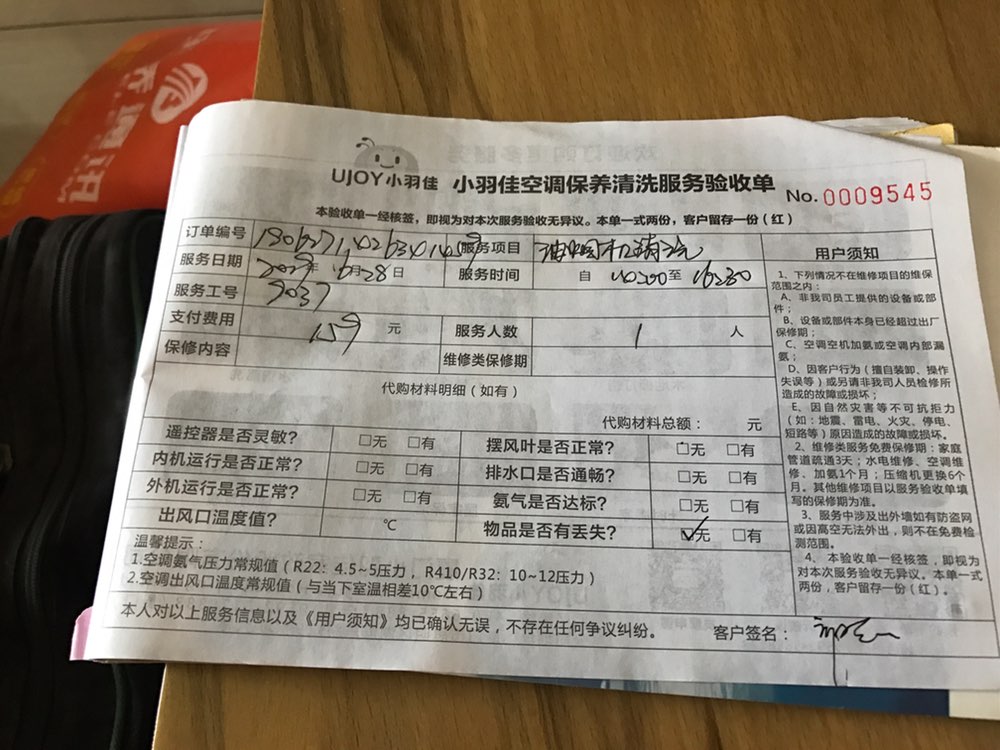 UJOY小羽佳 小羽佳空调保养清洗服务验收单 No.0009545
本验收单一经核签，即视为对本次服务验收无异议。本单一式两份，客户留存一份（红）
订单编号 服务项目
服务日期 年 6月28日 服务时间 自 至 16:30
服务工号 9037
支付费用 159 元 服务人数 1 人
保修内容 维修类保修期
代购材料明细（如有）
代购材料总额： 元
遥控器是否灵敏？ □无 □有 摆风叶是否正常？ □无 □有
内机运行是否正常？ □无 □有 排水口是否通畅？ □无 □有
外机运行是否正常？ □无 □有 氨气是否达标？ □无 □有
出风口温度值？ ℃ 物品是否有丢失？ ☑无 □有
温馨提示：
1.空调氨气压力常规值（R22：4.5~5压力，R410/R32：10~12压力）
2.空调出风口温度常规值（与当下室温相差10℃左右）
本人对以上服务信息以及《用户须知》均已确认无误，不存在任何争议纠纷。 客户签名：
用户须知
1、下列情况不在维修项目的维保
范围之内：
A、非我司员工提供的设备或部
件；
B、设备或部件本身已经超过出厂
保修期；
C、空调空机加氨或空调内部漏
氨；
D、因客户行为（擅自装卸、操作
失误等）或另请非我司人员检修所
造成的故障或损坏；
E、因自然灾害等不可抗拒力
（如：地震、雷电、火灾、停电、
短路等）原因造成的故障或损坏。
2、维修类服务免费保修期：家庭
管道疏通3天；水电维修、空调维
修、加氨1个月；压缩机更换6个
月。其他维修项目以服务验收单填
写的保修期为准。
3、服务中涉及出外墙如有防盗网
或因高空无法外出，则不在免费检
测范围。
4、本验收单一经核签，即视为
对本次服务验收无异议。本单一式
两份，客户留存一份（红）。